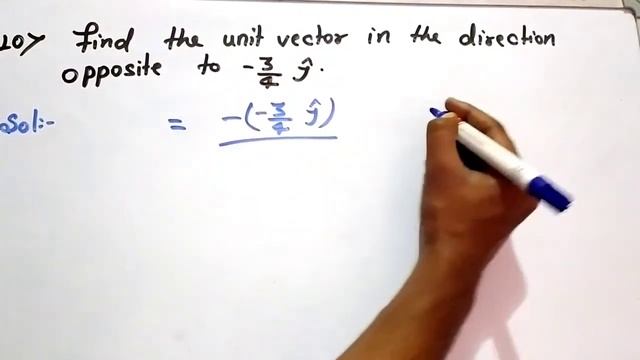 10> find the unit vector in the direction
opposite to -3/4 ŷ.
Sol:- = -(-3/4 ŷ)